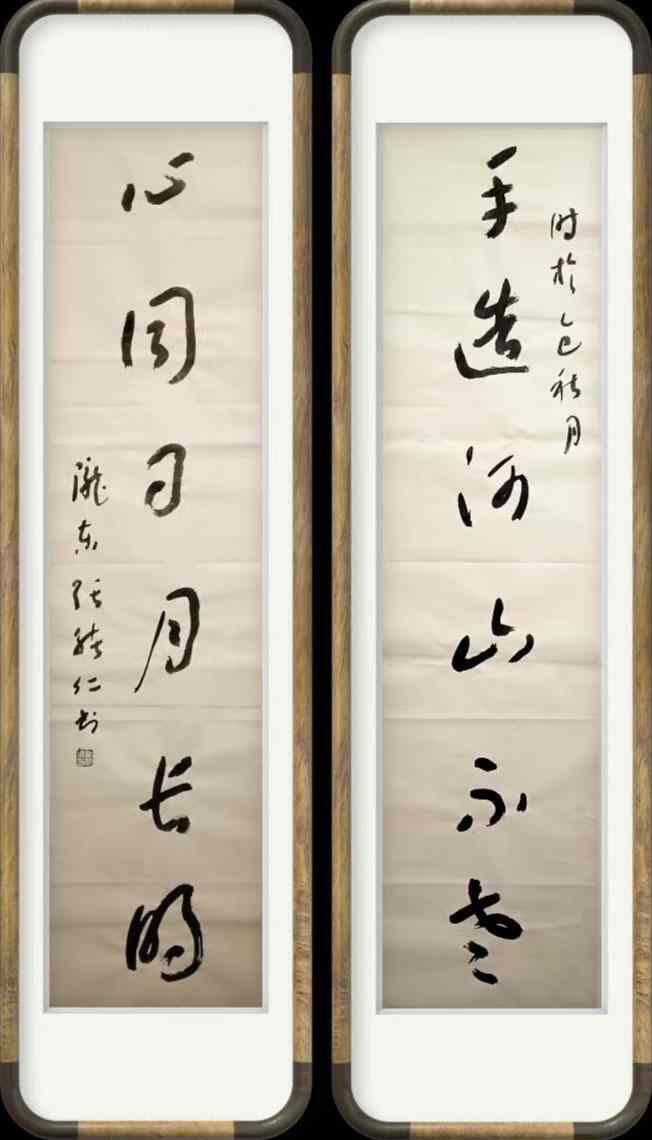 时於乙巳秋月
手造河山不老
心同日月长明
隴东张仁书